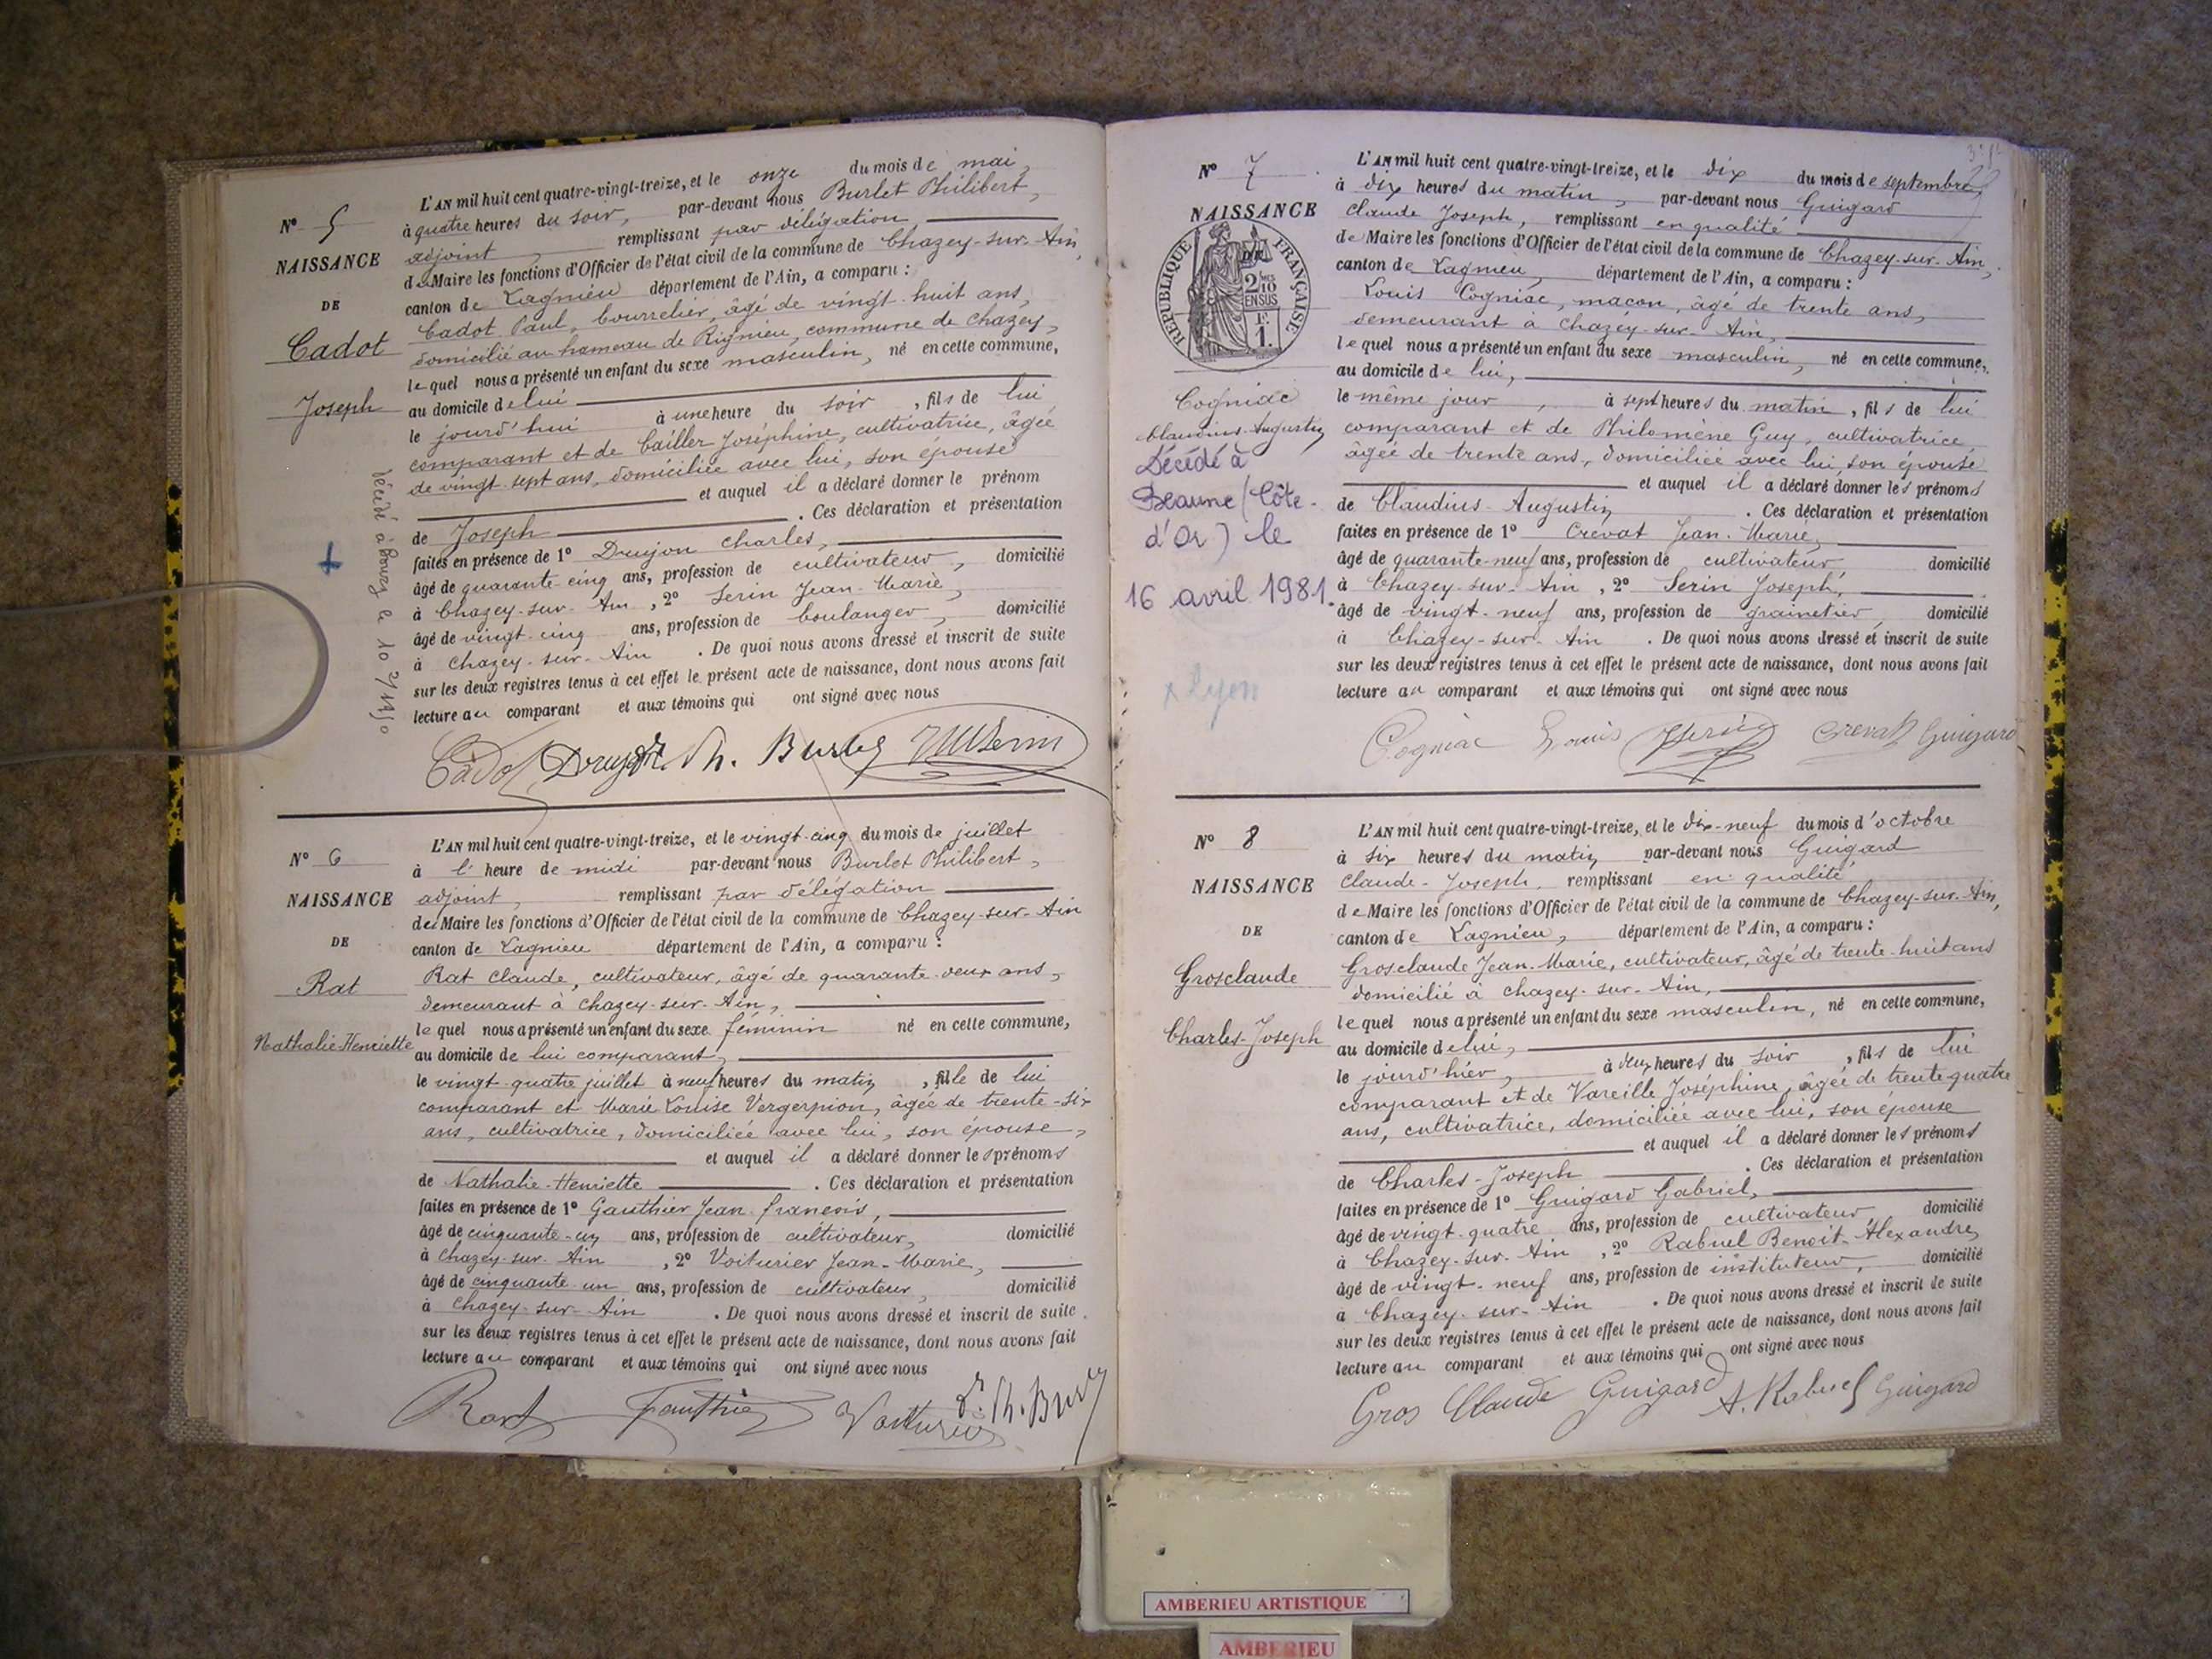 N° 5
NAISSANCE
DE
Cadot
Joseph
décédé à Bourg le 10
L'AN mil huit cent quatre-vingt-treize, et le onze du mois de mai,
à quatre heures du soir, par-devant nous Burlet Philibert,
adjoint, remplissant par délégation
de Maire les fonctions d'Officier de l'état civil de la commune de Chazey-sur-Ain,
canton de Lagnieu département de l'Ain, a comparu :
Cadot Paul, bourrelier, âgé de vingt-huit ans,
domicilié au hameau de Rignieu, commune de Chazey,
lequel nous a présenté un enfant du sexe masculin, né en cette commune,
au domicile de lui
le jourd'hui à une heure du soir, fils de lui
comparant et de Cailler Joséphine, cultivatrice, âgée
de vingt-sept ans, domiciliée avec lui, son épouse
et auquel il a déclaré donner le prénom
de Joseph . Ces déclaration et présentation
faites en présence de 1° Drujon Charles,
âgé de quarante-cinq ans, profession de cultivateur, domicilié
à Chazey-sur-Ain, 2° Serin Jean-Marie,
âgé de vingt-cinq ans, profession de boulanger, domicilié
à Chazey-sur-Ain . De quoi nous avons dressé et inscrit de suite
sur les deux registres tenus à cet effet le présent acte de naissance, dont nous avons fait
lecture au comparant et aux témoins qui ont signé avec nous
Cadot Drujon Ph. Burlet JM Serin
N° 6
NAISSANCE
DE
Rat
Nathalie-Henriette
L'AN mil huit cent quatre-vingt-treize, et le vingt-cinq du mois de juillet
à l' heure de midi par-devant nous Burlet Philibert,
adjoint, remplissant par délégation
de Maire les fonctions d'Officier de l'état civil de la commune de Chazey-sur-Ain
canton de Lagnieu département de l'Ain, a comparu :
Rat Claude, cultivateur, âgé de quarante-deux ans,
demeurant à Chazey-sur-Ain,
lequel nous a présenté un enfant du sexe féminin né en cette commune,
au domicile de lui comparant,
le vingt-quatre juillet à neuf heures du matin, fille de lui
comparant et Marie Louise Vergerpion, âgée de trente-six
ans, cultivatrice, domiciliée avec lui, son épouse,
et auquel il a déclaré donner les prénoms
de Nathalie-Henriette . Ces déclaration et présentation
faites en présence de 1° Gauthier Jean-françois,
âgé de cinquante-un ans, profession de cultivateur, domicilié
à Chazey-sur-Ain, 2° Voiturier Jean-Marie,
âgé de cinquante-un ans, profession de cultivateur, domicilié
à Chazey-sur-Ain . De quoi nous avons dressé et inscrit de suite
sur les deux registres tenus à cet effet le présent acte de naissance, dont nous avons fait
lecture au comparant et aux témoins qui ont signé avec nous
Rat Gauthier Voiturier Ph. Burlet
N° 7
NAISSANCE
DE
RÉPUBLIQUE FRANÇAISE
2/10 EN SUS
1.
Cogniac
Claudius-Augustin
Décédé à
Beaune (Côte-
d'Or) le
16 avril 1981.
x Lyon
L'AN mil huit cent quatre-vingt-treize, et le dix du mois de septembre,
à dix heures du matin, par-devant nous Guigard
Claude Joseph, remplissant en qualité
de Maire les fonctions d'Officier de l'état civil de la commune de Chazey-sur-Ain,
canton de Lagnieu, département de l'Ain, a comparu :
Louis Cogniac, maçon, âgé de trente ans,
demeurant à Chazey-sur-Ain,
lequel nous a présenté un enfant du sexe masculin, né en cette commune,
au domicile de lui,
le même jour, à sept heures du matin, fils de lui
comparant et de Philomène Guy, cultivatrice
âgée de trente ans, domiciliée avec lui, son épouse
et auquel il a déclaré donner les prénoms
de Claudius-Augustin . Ces déclaration et présentation
faites en présence de 1° Crevat Jean-Marie,
âgé de quarante-neuf ans, profession de cultivateur, domicilié
à Chazey-sur-Ain, 2° Serin Joseph,
âgé de vingt-neuf ans, profession de grainetier domicilié
à Chazey-sur-Ain . De quoi nous avons dressé et inscrit de suite
sur les deux registres tenus à cet effet le présent acte de naissance, dont nous avons fait
lecture au comparant et aux témoins qui ont signé avec nous
Cogniac Louis J Serin Crevat Guigard
N° 8
NAISSANCE
DE
Grosclaude
Charles-Joseph
L'AN mil huit cent quatre-vingt-treize, et le dix-neuf du mois d'octobre
à six heures du matin par-devant nous Guigard
Claude-Joseph, remplissant en qualité
de Maire les fonctions d'Officier de l'état civil de la commune de Chazey-sur-Ain,
canton de Lagnieu, département de l'Ain, a comparu :
Grosclaude Jean-Marie, cultivateur, âgé de trente-huit ans
domicilié à Chazey-sur-Ain,
lequel nous a présenté un enfant du sexe masculin, né en cette commune,
au domicile de lui,
le jourd'hier, à deux heures du soir, fils de lui
comparant et de Vareille Joséphine, âgée de trente-quatre
ans, cultivatrice, domiciliée avec lui, son épouse
et auquel il a déclaré donner les prénoms
de Charles-Joseph . Ces déclaration et présentation
faites en présence de 1° Guigard Gabriel,
âgé de vingt-quatre ans, profession de cultivateur domicilié
à Chazey-sur-Ain, 2° Rabuel Benoit-Alexandre,
âgé de vingt-neuf ans, profession de instituteur, domicilié
à Chazey-sur-Ain . De quoi nous avons dressé et inscrit de suite
sur les deux registres tenus à cet effet le présent acte de naissance, dont nous avons fait
lecture au comparant et aux témoins qui ont signé avec nous
Gros Claude Guigard A. Rabuel Guigard
AMBERIEU ARTISTIQUE
AMBERIEU